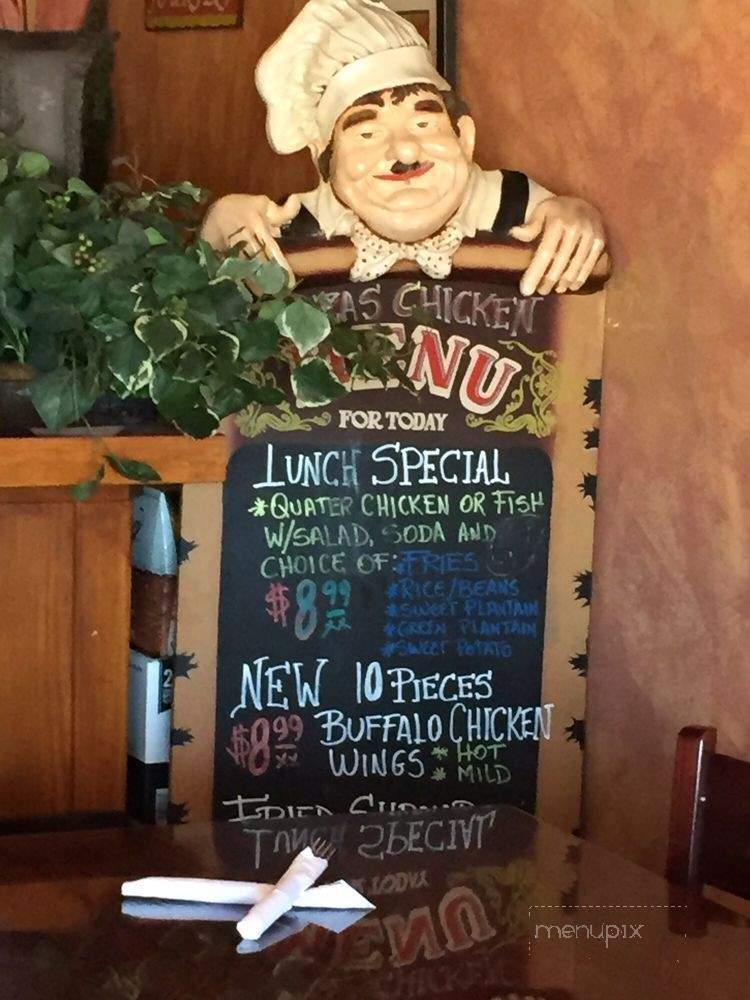 CHICKEN
MENU
FOR TODAY
LUNCH SPECIAL
*QUATER CHICKEN OR FISH
W/SALAD, SODA AND
CHOICE OF: *FRIES
$8.99 *RICE/BEANS
*SWEET PLANTAIN
*GREEN PLANTAIN
*SWEET POTATO
NEW 10 PIECES
$8.99 BUFFALO CHICKEN
WINGS *HOT
*MILD
FRIED SHRIMP
menupix